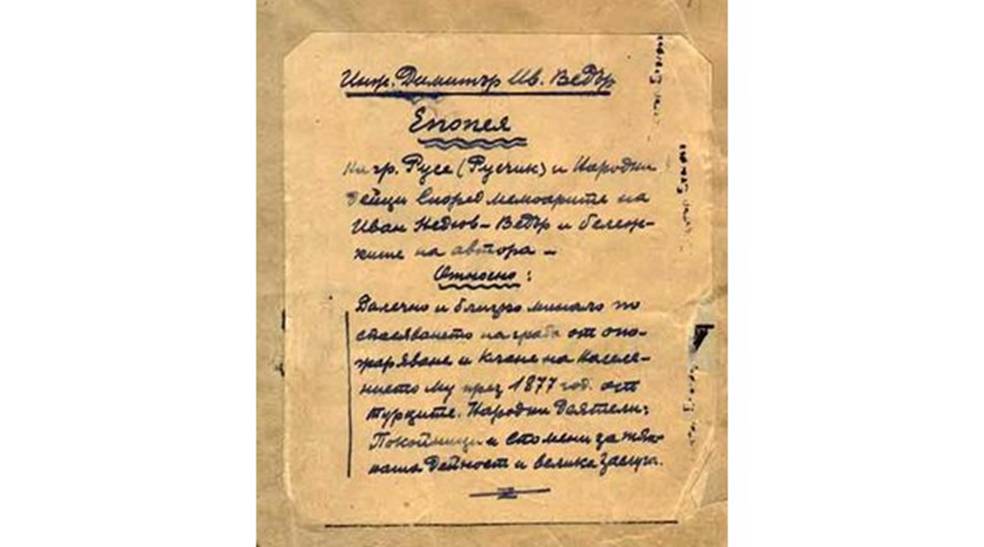 Инж. Димитър Ив. Ведър
Епопея
на гр. Русе (Русчик) и Народни
дейци според мемоарите на
Иван Недюв - Ведър и бележ-
ките на автора -
Относно:
Далечно и близко минало по
спасяването на града от опо-
жаряване и клане на населе-
нието му през 1877 год. от
турците. Народни деятели:
Покойници и спомени за тях-
ната дейност и велика заслуга.